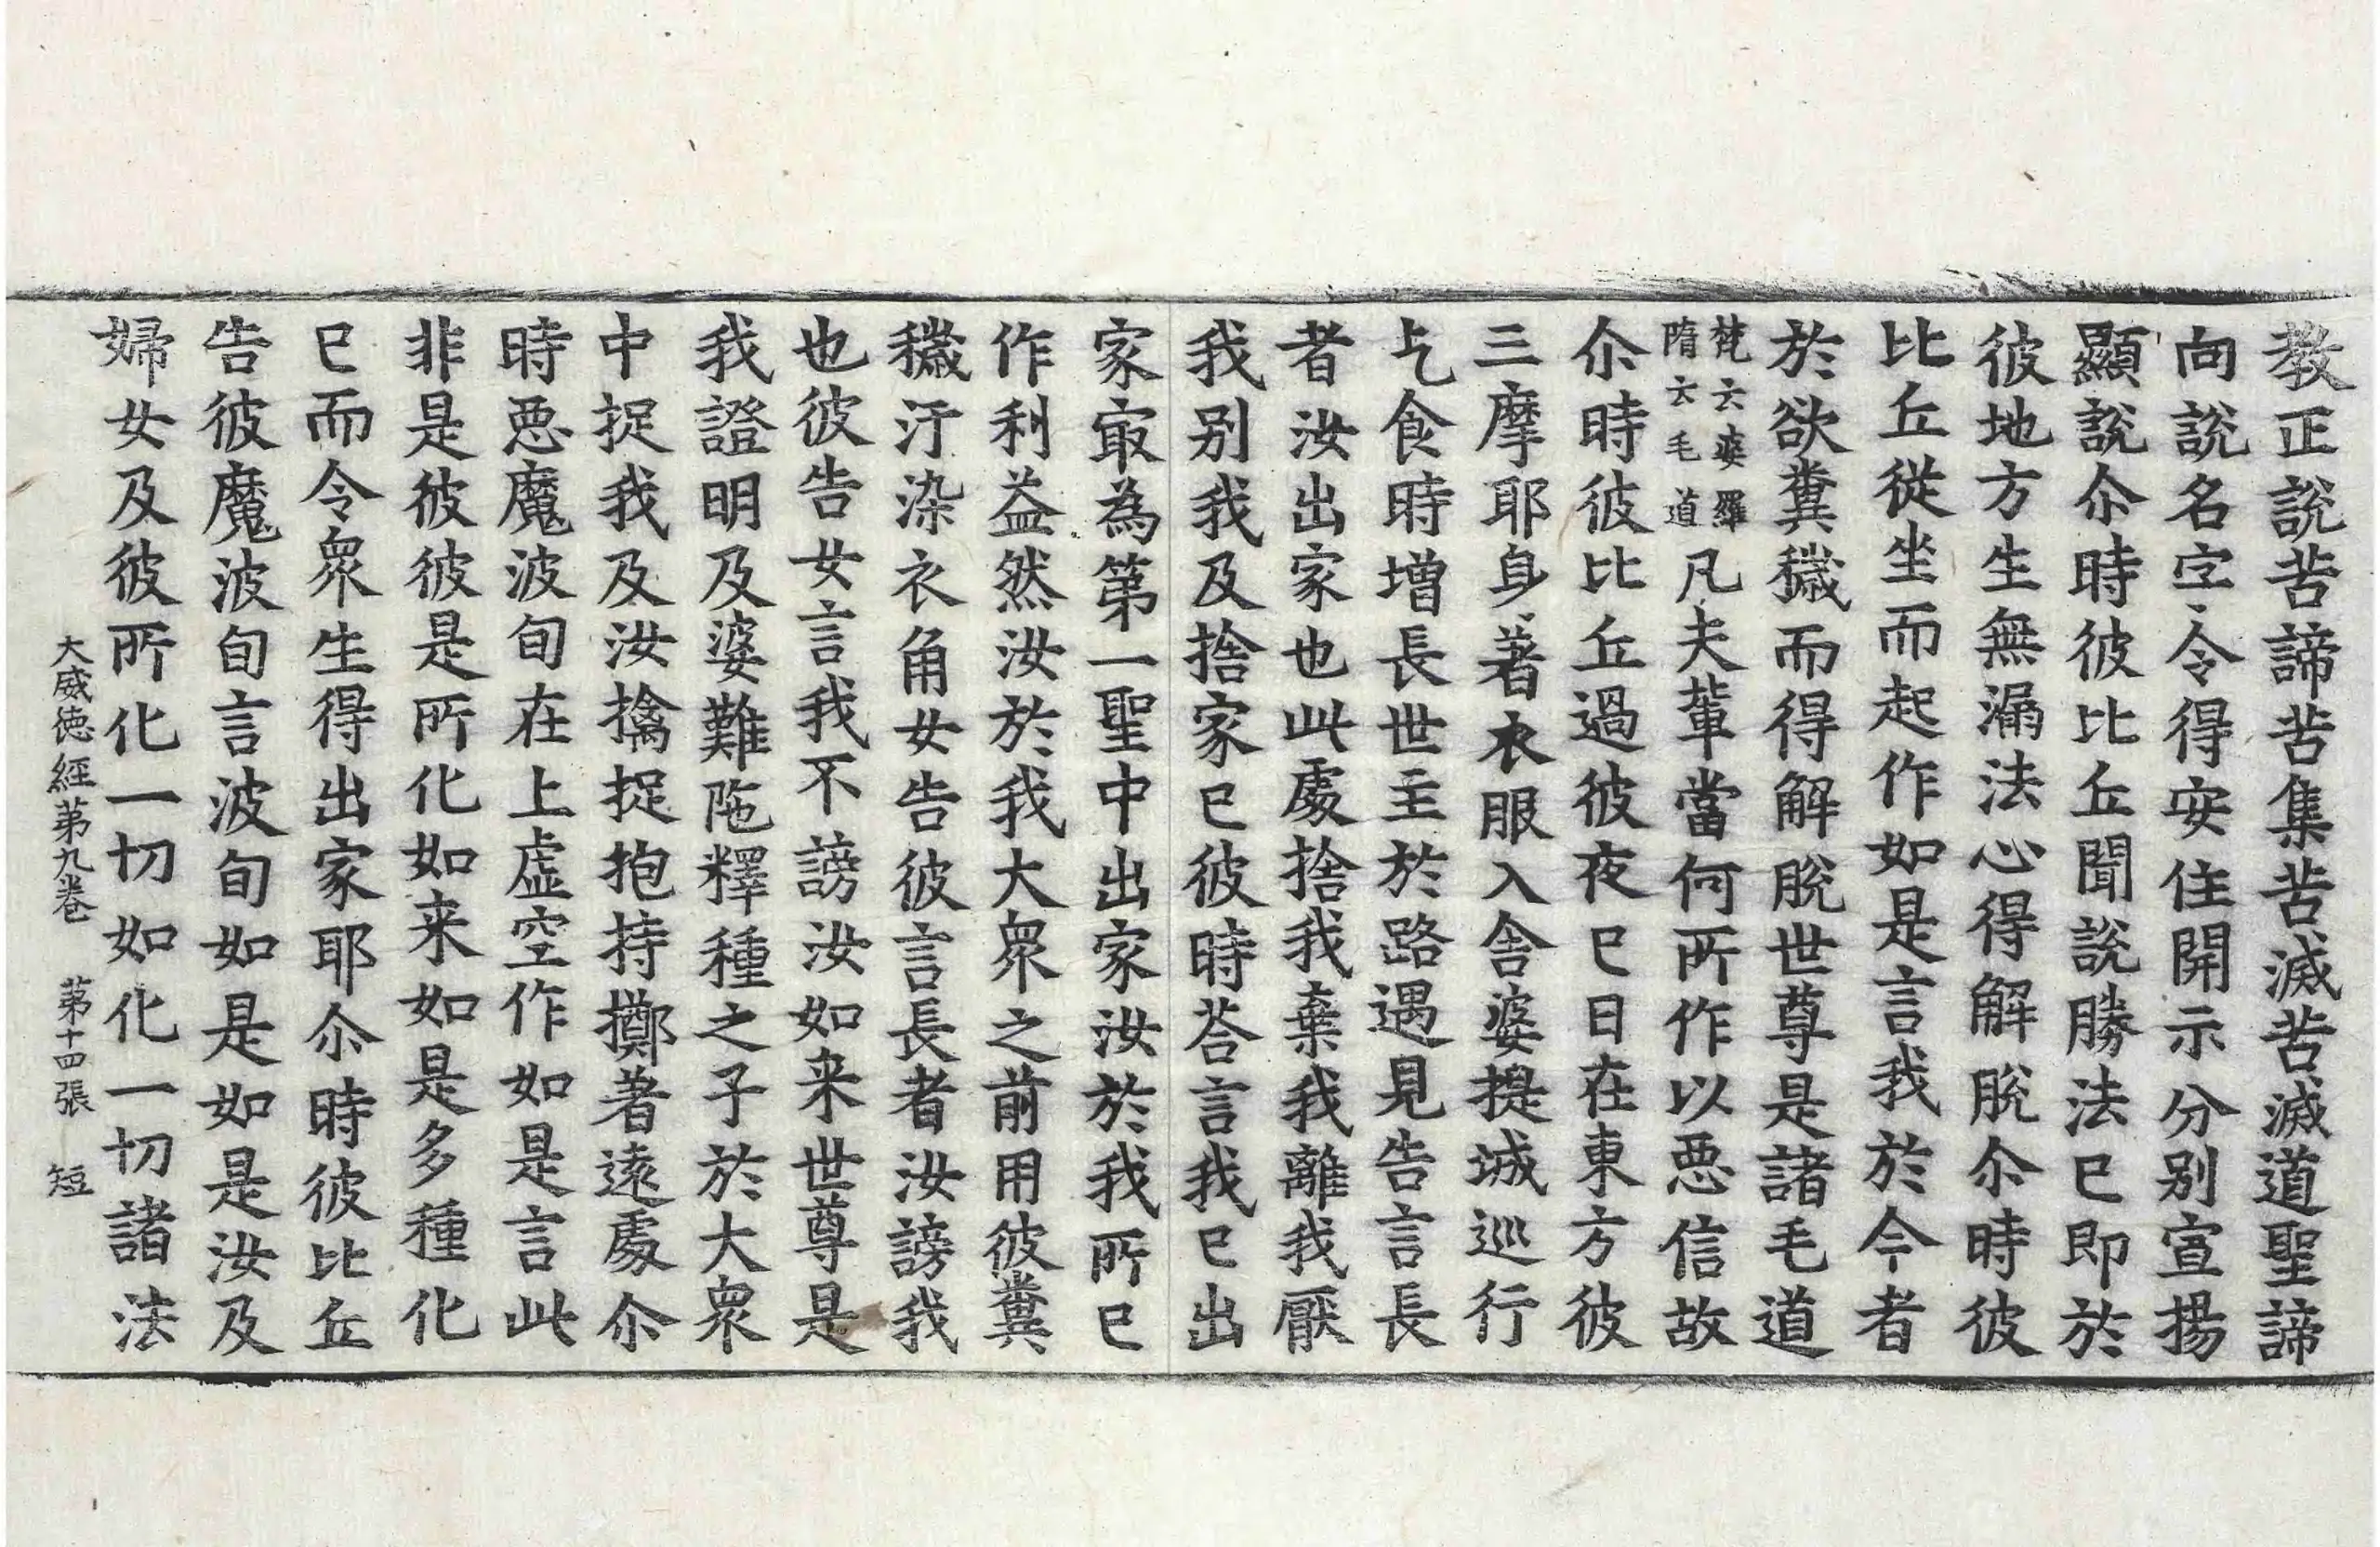 教正說苦諦苦集苦滅苦滅道聖諦
向說名字令得安住開示分別宣揚
顯說尒時彼比丘聞說勝法已即於
彼地方生無漏法心得解脫尒時彼
比丘從坐而起作如是言我於今者
於欲糞穢而得解脫世尊是諸毛道
梵云婆羅
隋云毛道
凡夫輩當何所作以惡信故
尒時彼比丘過彼夜已日在東方彼
三摩耶身著衣服入舍婆提城巡行
乞食時增長世主於路遇見告言長
者汝出家也此處捨我棄我離我厭
我別我及捨家已彼時荅言我已出
家㝡為第一聖中出家汝於我所已
作利益然汝於我大衆之前用彼糞
穢汙染衣角女告彼言長者汝謗我
也彼告女言我不謗汝如来世尊是
我證明及婆難陁釋種之子於大衆
中捉我及汝擒捉抱持擲著遠處尒
時惡魔波旬在上虛空作如是言此
非是彼彼是所化如来如是多種化
已而令衆生得出家耶尒時彼比丘
告彼魔波旬言波旬如是如是汝及
婦女及彼所化一切如化一切諸法
大威德經第九卷　第十四張　短